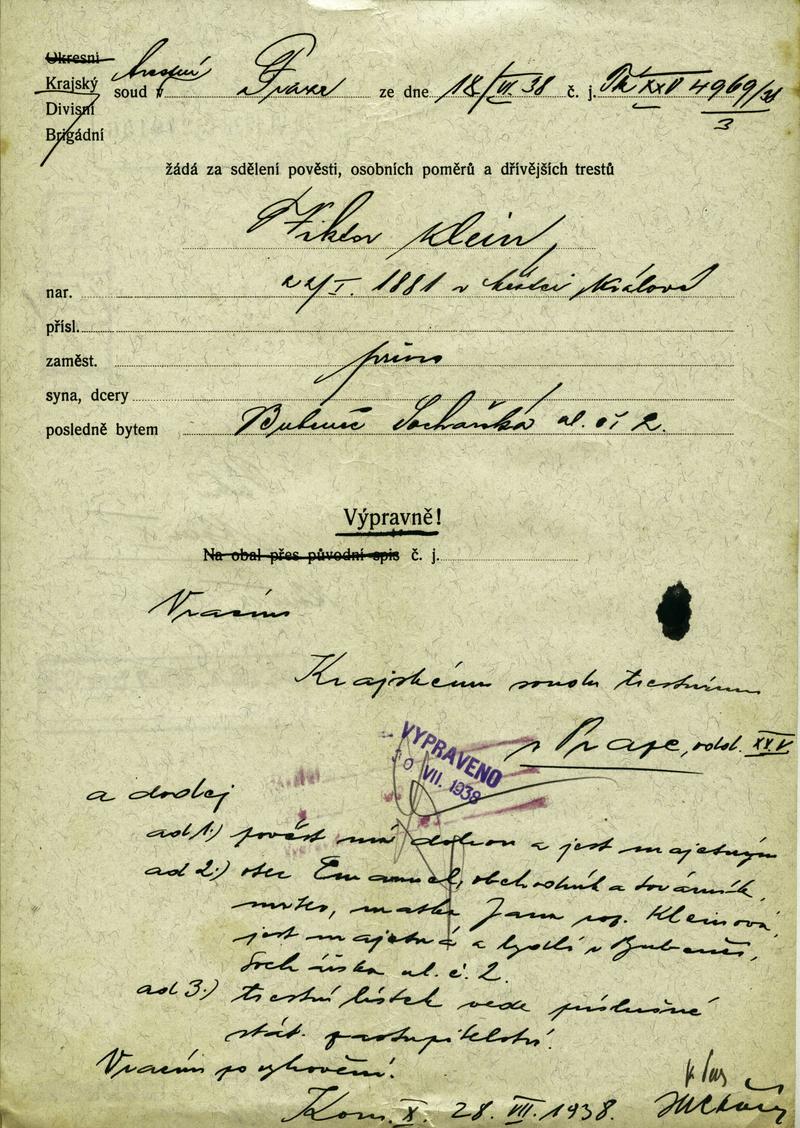 Okresní
Krajský trestní soud v Praze ze dne 18/VI. 38 č. j. Tk XXV 4969/38
3
Divisní
Brigádní
žádá za sdělení pověsti, osobních poměrů a dřívějších trestů
Viktor Klein,
nar. 22/I. 1881 v Městci Králové
přísl.
zaměst.
syna, dcery
posledně bytem Bubeneč Sochařská ul. čí 2.
Výpravně!
Na obal přes původní spis č. j.
Vracím
Krajskému soudu trestnímu
v Praze, odd. XXV
VYPRAVENO
30 VII. 1938
a dodej
ad 1.) pověst má dobrou a jest majetným
ad 2.) otec Emanuel, obchodník a továrník,
mrtev, matka Jana roz. Kleinová,
jest majetná a bydlí v Bubenči,
Sochařská ul. č. 2.
ad 3.) trestní lístek vede příslušné
stát. zastupitelství.
Vracím po vyhovění.
Kom. X. 28. VII. 1938.